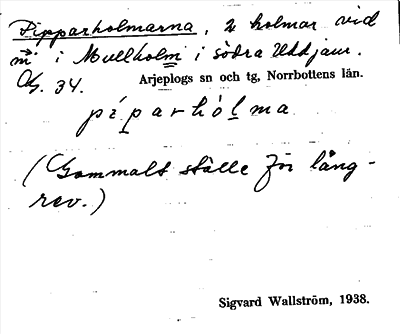 Pipparholmarna, 2 holmar vid
m i Mullholm i södra Uddjaur.
Og. 34. Arjeplogs sn och tg, Norrbottens län.
píparhòlma
(Gammalt ställe för lång-
rev.)
Sigvard Wallström, 1938.